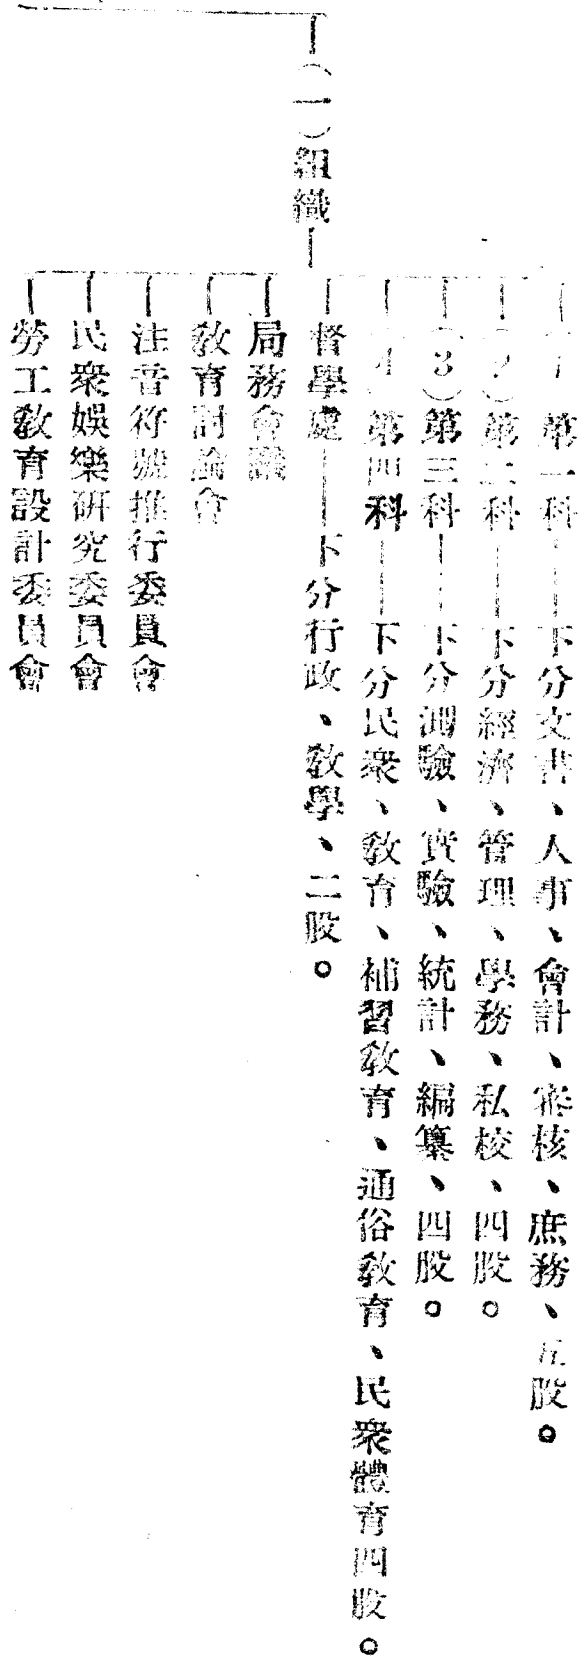 （一）組織
（1）第一科——下分文書、人事、會計、審核、庶務、五股。
（2）第二科——下分經濟、管理、學務、私校、四股。
（3）第三科——下分測驗、實驗、統計、編纂、四股。
（4）第四科——下分民衆、敎育、補習敎育、通俗敎育、民衆體育四股。
督學處——下分行政、敎學、二股。
局務會議
敎育討論會
注音符號推行委員會
民衆娛樂研究委員會
勞工敎育設計委員會